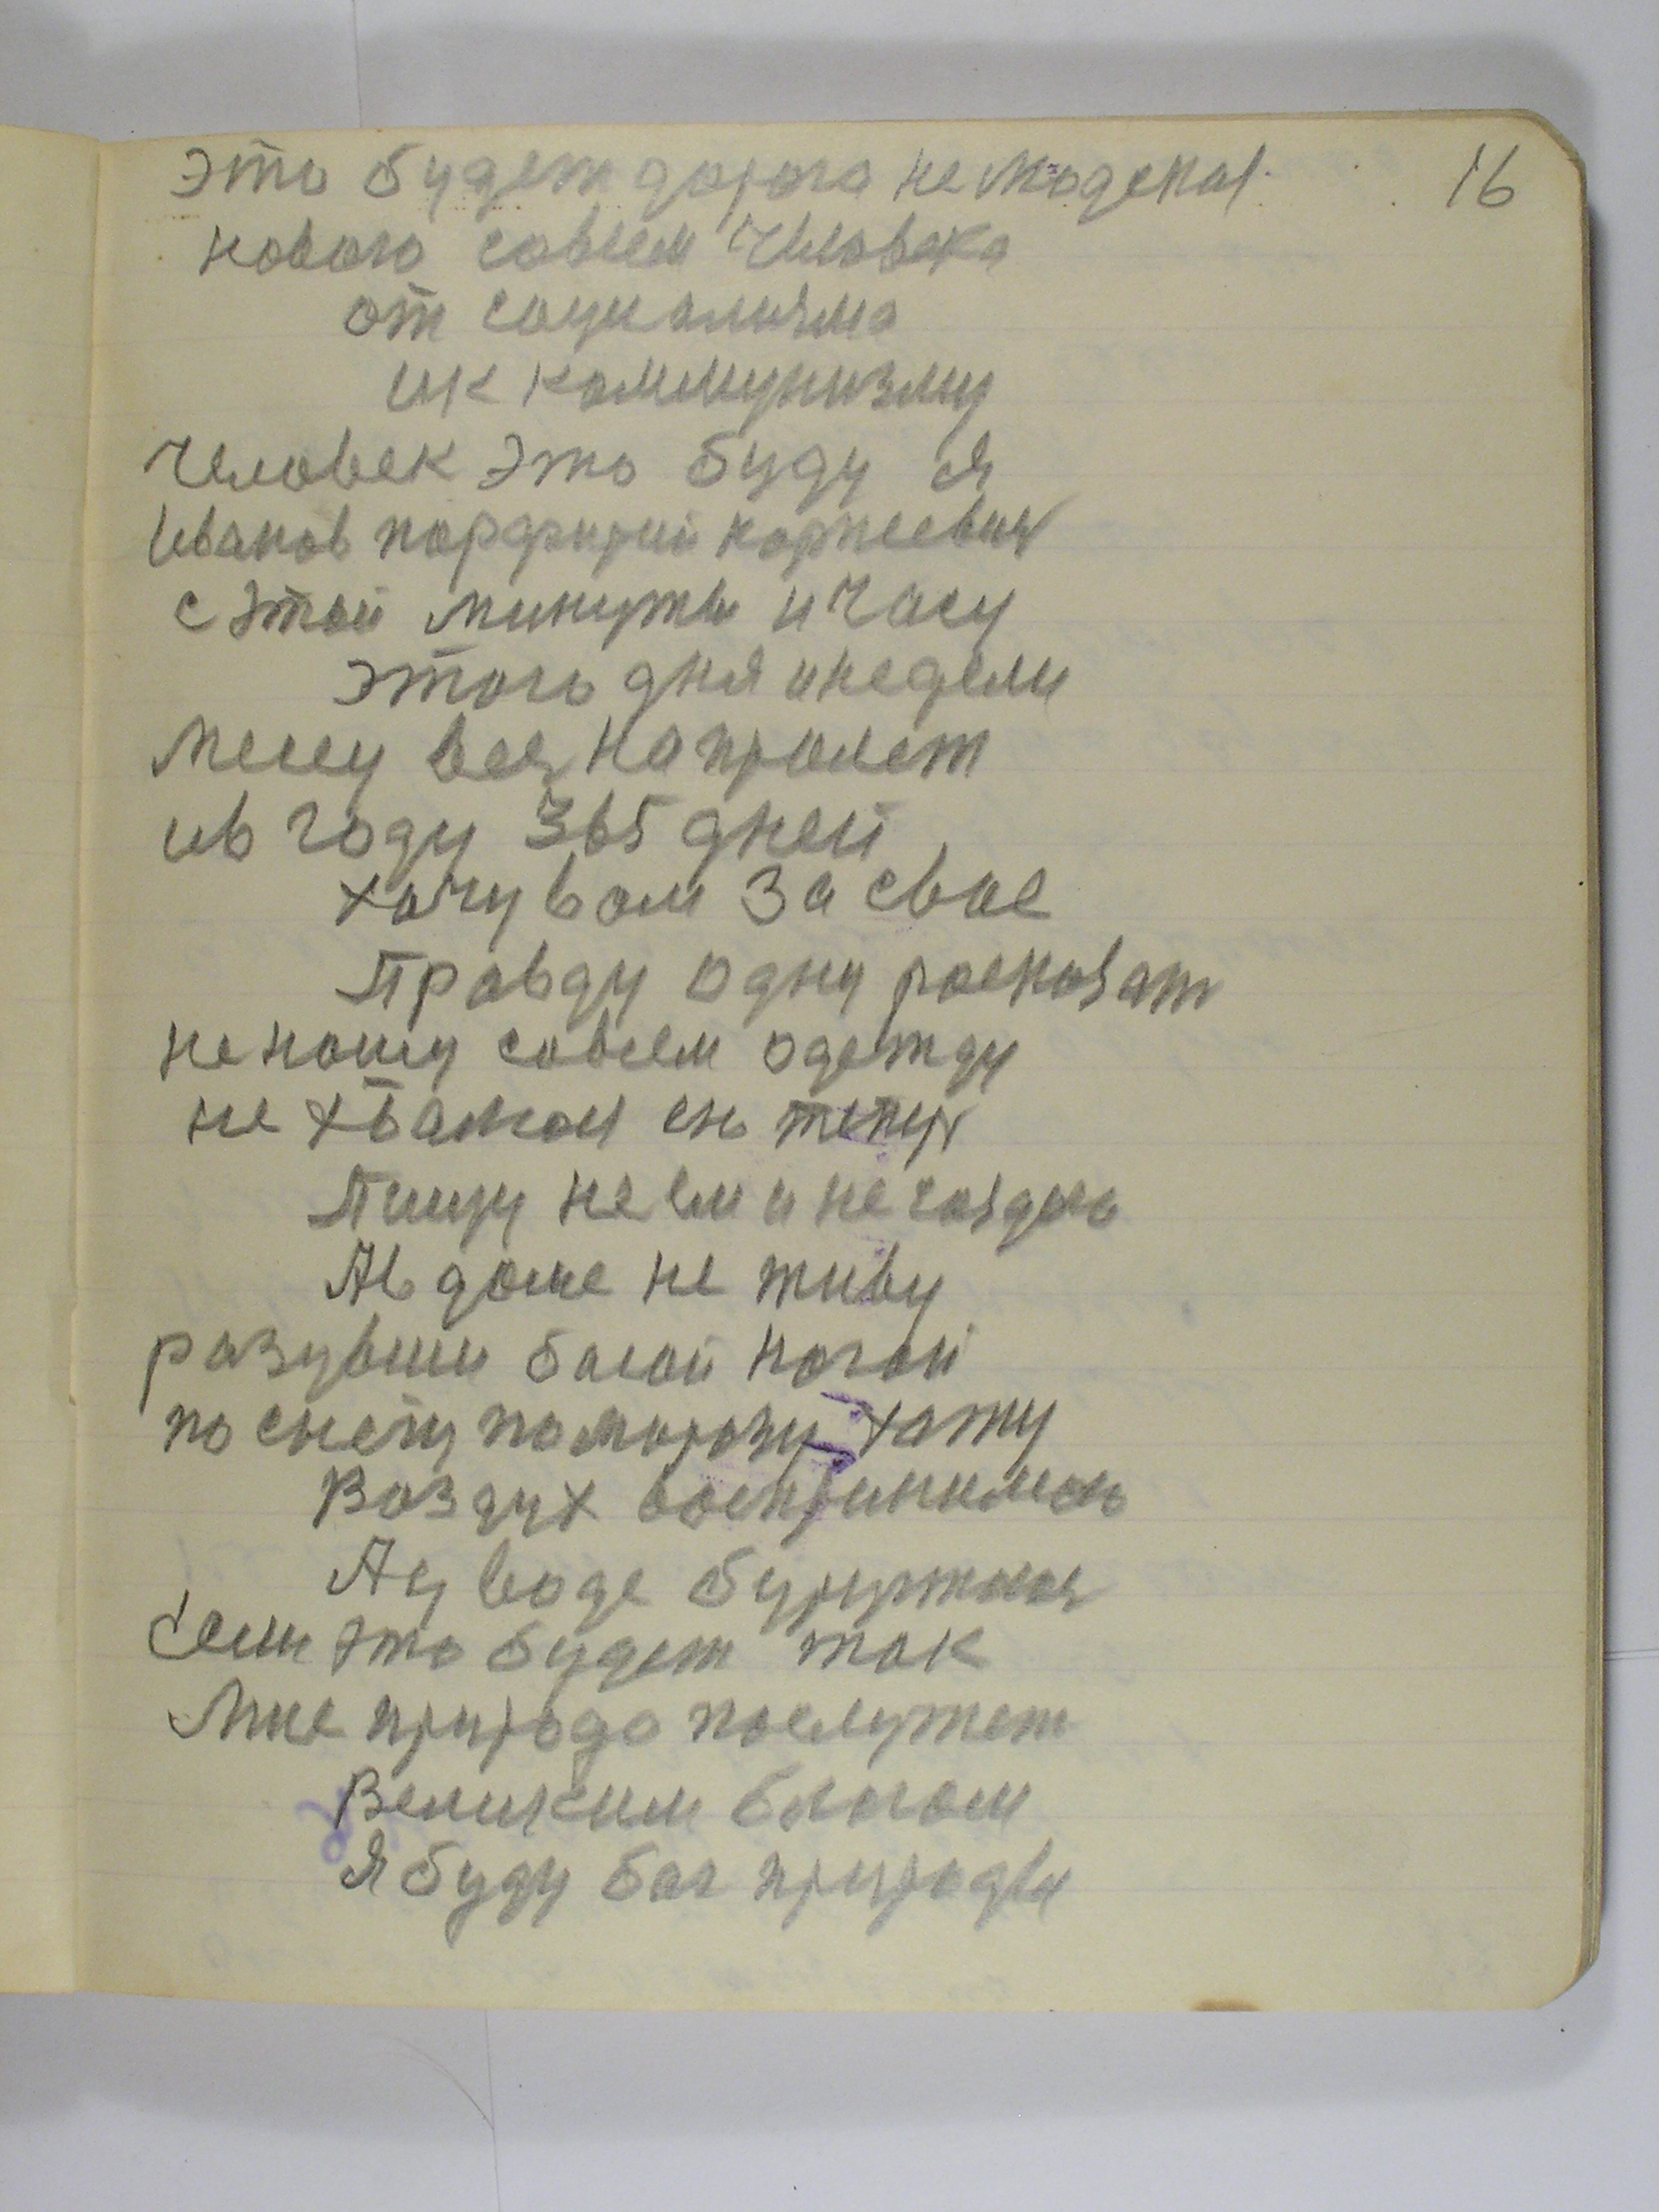 16
Это будет дорога не людская
нового совсем человека
от социализма
ик коммунизму
человек это буду я
Иванов порфирий корнеевич
с этой минуты и часу
этого дня инедели
месец весь напролет
ив году 365 дней
хочу вам за свое
Правду одну росказат
неношу совсем одежду
не
Пищу неем и не
Ав доме не живу
разувши босой ногой
по снегу поморозу хожу
Воздух воспринимаю
Ау воде
Если это будет так
Мне природа послужет
Великим благом
Я буду бог природы